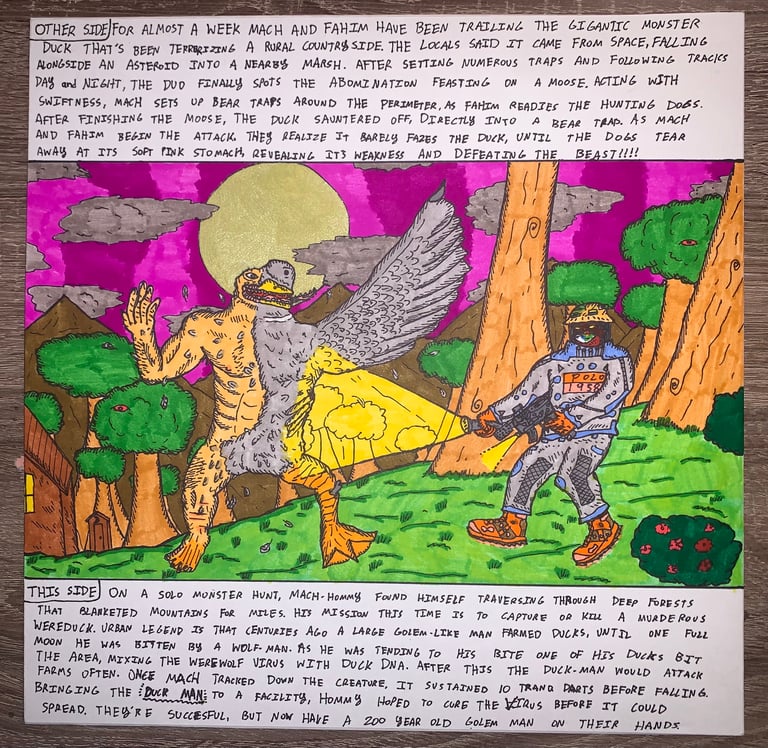 OTHER SIDE FOR ALMOST A WEEK MACH AND FAHIM HAVE BEEN TRAILING THE GIGANTIC MONSTER
DUCK THAT'S BEEN TERRORIZING A RURAL COUNTRYSIDE. THE LOCALS SAID IT CAME FROM SPACE, FALLING
ALONGSIDE AN ASTEROID INTO A NEARBY MARSH. AFTER SETTING NUMEROUS TRAPS AND FOLLOWING TRACKS
DAY and NIGHT, THE DUO FINALLY SPOTS THE ABOMINATION FEASTING ON A MOOSE. ACTING WITH
SWIFTNESS, MACH SETS UP BEAR TRAPS AROUND THE PERIMETER, AS FAHIM READIES THE HUNTING DOGS.
AFTER FINISHING THE MOOSE, THE DUCK SAUNTERED OFF, DIRECTLY INTO A BEAR TRAP. AS MACH
AND FAHIM BEGIN THE ATTACK. THEY REALIZE IT BARELY FAZES THE DUCK, UNTIL THE DOGS TEAR
AWAY AT ITS SOFT PINK STOMACH, REVEALING IT'S WEAKNESS AND DEFEATING THE BEAST!!!!
POLO
1993
THIS SIDE ON A SOLO MONSTER HUNT, MACH-HOMMY FOUND HIMSELF TRAVERSING THROUGH DEEP FORESTS
THAT BLANKETED MOUNTAINS FOR MILES. HIS MISSION THIS TIME IS TO CAPTURE OR KILL A MURDEROUS
WEREDUCK. URBAN LEGEND IS THAT CENTURIES AGO A LARGE GOLEM-LIKE MAN FARMED DUCKS, UNTIL ONE FULL
MOON HE WAS BITTEN BY A WOLF-MAN. AS HE WAS TENDING TO HIS BITE ONE OF HIS DUCKS BIT
THE AREA, MIXING THE WEREWOLF VIRUS WITH DUCK DNA. AFTER THIS THE DUCK-MAN WOULD ATTACK
FARMS OFTEN. ONCE MACH TRACKED DOWN THE CREATURE, IT SUSTAINED 10 TRANQ DARTS BEFORE FALLING.
BRINGING THE "DUCK MAN" TO A FACILITY, HOMMY HOPED TO CURE THE VIRUS BEFORE IT COULD
SPREAD. THEY'RE SUCCESFUL, BUT NOW HAVE A 200 YEAR OLD GOLEM MAN ON THEIR HANDS